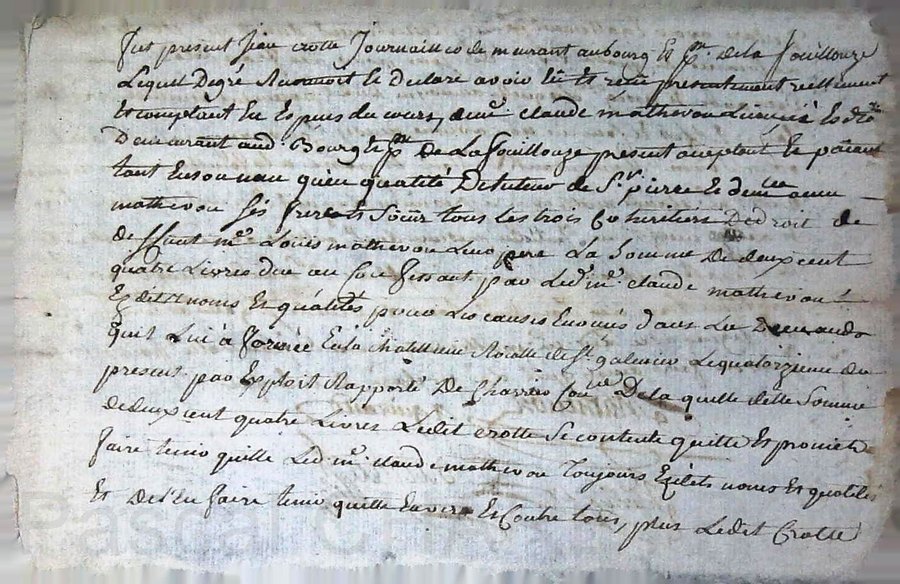 fut present Jean crotte Journallier demeurant au bourg et psse de la fouillouze
Lequel De gré Reconnoit et Declare avoir Eu et reçu presentement reellement
et comptant En Especes du cours, de me claude mathevon Licencié Es droits
Demeurant aud. Bourg et psse De La fouillouze present acceptant Et paiant
tant En son nom qu'en qualité De tuteur de Sr pierre Et demlle
mathevon ses frere et Soeur tous les trois Coheritiers De droit de
deffunt me Louis mathevon Leur pere La Somme De deux cent
quatre Livres due au Confessant par Led. me claude mathevon
Esdits noms Et qualités pour les causes Enoncés dans La Demande
quil Lui à formée En la chatellenie Roialle de St galmier Le quatorzieme du
present par Exploit Rapporté De Charrin De la quelle ditte Somme
de deux cent quatre Livres Ledit crotte Se contente quitte Et promet
faire tenir quitte Led. me claude mathevon Toujours Esdits noms Et qualités
Et De L'en faire tenir quitte Envers Et Contre tous, plus Ledit Crotte